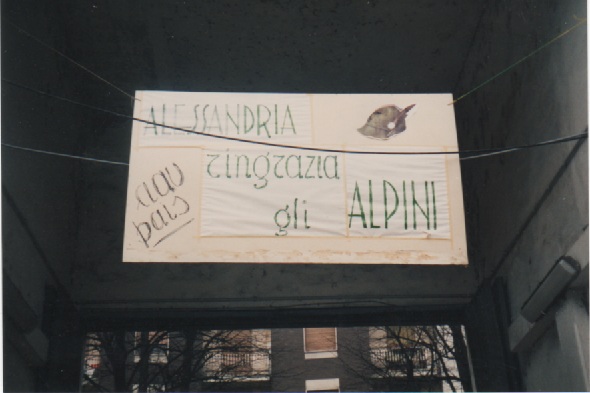 ALESSANDRIA
ringrazia
gli ALPINI
ciau
pais